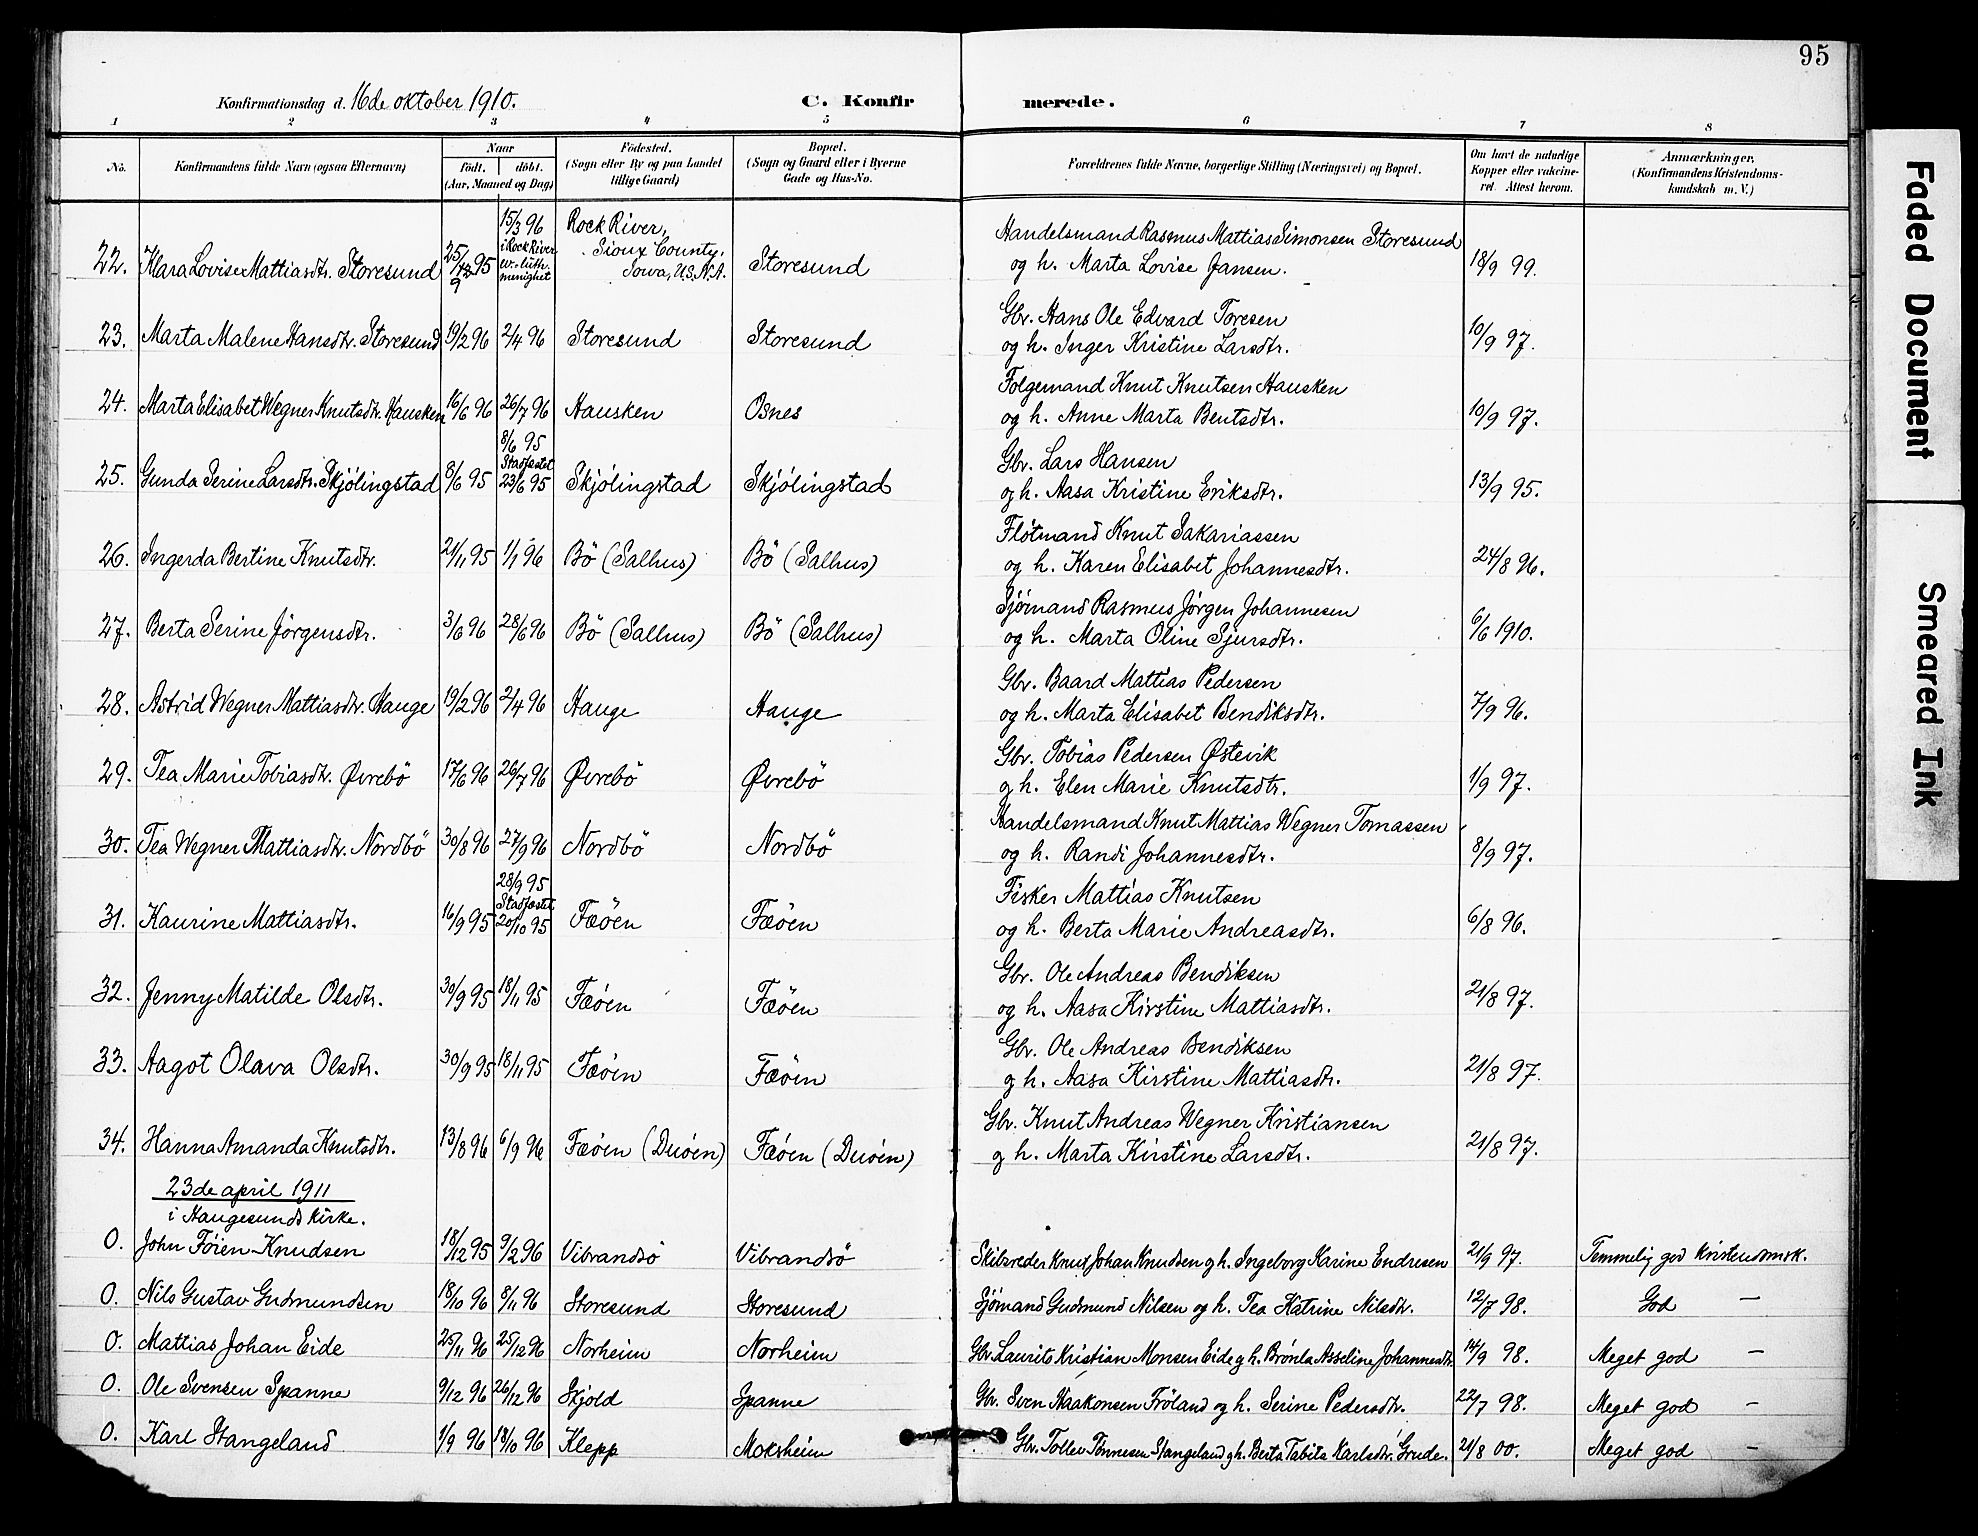 95
Konfirmationsdag d. 16de oktober 1910.
C. Konfirmerede.
1 2 3 4 5 6 7 8
No.
Konfirmandens fulde Navn (ogsaa Efternavn)
Naar
født. døbt.
(Aar, Maaned og Dag)
Födested.
(Sogn eller By og paa Landet
tillige Gaard)
Bopæl.
(Sogn og Gaard eller i Byerne
Gade og Hus-No.
Forældrenes fulde Navne, borgerlige Stilling (Næringsvei) og Bopæl.
Om havt de naturlige
Kopper eller vakcine-
ret. Attest herom.
Anmærkninger.
(Konfirmandens Kristendoms-
kundskab m. V.)
15/3 96 Rock River,
i Rock River Sioux County, Handelsmand Rasmus Mattias Simonsen Storesund
22. Klara Lovise Mattiasdtr. Storesund 25/9 95 ev. luth. menighet Iowa, U.S.N.A. Storesund og h. Marta Lovise Jansen. 18/9 99.
Gbr. Hans Ole Edvard Toresen
23. Marta Malene Hansdtr. Storesund 19/2 96 2/4 96 Storesund Storesund og h. Inger Kristine Larsdtr. 10/9 97.
Folgemand Knut Knutsen Hausken
24. Marta Elisabet Wegner Knutsdtr. Hausken 16/6 96 26/7 96 Hausken Osnes og h. Anne Marta Bentsdtr. 10/9 97.
8/6 95
Stadfæstet Gbr. Lars Hansen
25. Gunda Serine Larsdtr. Skjölingstad 8/6 95 23/6 95 Skjölingstad Skjölingstad og h. Aasa Kristine Eriksdtr. 13/9 95.
Flötmand Knut Sakariassen
26. Ingerda Bertine Knutsdtr. 21/11 95 1/1 96 Bö (Salhus) Bö (Salhus) og h. Karen Elisabet Johannesdtr. 24/8 96.
Sjömand Rasmus Jörgen Johannesen
27. Berta Serine Jörgensdtr. 3/6 96 28/6 96 Bö (Salhus) Bö (Salhus) og h. Marta Oline Sjursdtr. 6/6 1910.
Gbr. Baard Mattias Pedersen
28. Astrid Wegner Mattiasdtr. Hauge 19/2 96 2/4 96 Hauge Hauge og h. Marta Elisabet Bendiksdtr. 7/9 96.
Gbr. Tobias Pedersen Østevik
29. Tea Marie Tobiasdtr. Øvrebö 17/6 96 26/7 96 Øvrebö Øvrebö og h. Elen Marie Knutsdtr. 1/9 97.
Handelsmand Knut Mattias Wegner Tomassen
30. Tea Wegner Mattiasdtr. Nordbö 30/8 96 27/9 96 Nordbö Nordbö og h. Randi Johannesdtr. 8/9 97.
28/9 95
Stadfæstet Fisker Mattias Knutsen
31. Kaurine Mattiasdtr. 16/9 95 20/10 95 Fæöen Fæöen og h. Berta Marie Andreasdtr. 6/8 96.
Gbr. Ole Andreas Bendiksen
32. Jenny Matilde Olsdtr. 30/9 95 18/11 95 Fæöen Fæöen og h. Aasa Kirstine Mattiasdtr. 21/8 97.
Gbr. Ole Andreas Bendiksen
33. Aagot Olava Olsdtr. 30/9 95 18/11 95 Fæöen Fæöen og h. Aasa Kirstine Mattiasdtr. 21/8 97.
Gbr. Knut Andreas Wegner Kristiansen
34. Hanna Amanda Knutsdtr. 13/8 96 6/9 96 Fæöen (Duöen) Fæöen (Duöen) og h. Marta Kirstine Larsdtr. 21/8 97.
23de april 1911
i Haugesunds kirke.
0. John Föien Knudsen 18/12 95 9/2 96 Vibrandsö Vibrandsö Skibsreder Knut Johan Knudsen og h. Ingeborg Karine Endresen 21/9 97. Temmelig god kristendomsk.
0. Nils Gustav Gudmundsen 18/10 96 8/11 96 Storesund Storesund Sjömand Gudmund Nilsen og h. Tea Katrine Nilsdtr. 12/7 98. God —
0. Mattias Johan Eide 25/11 96 25/12 96 Norheim Norheim Gbr. Laurits Kristian Monsen Eide og h. Brönla Asseline Johannesdtr. 14/9 98. Meget god —
0. Ole Svensen Spanne 9/12 96 26/12 96 Skjold Spanne Gbr. Sven Haakonsen Fröland og h. Serine Pedersdtr. 22/7 98. Meget god —
0. Karl Stangeland 1/9 96 18/10 96 Klepp Moksheim Gbr. Tollev Tönnesen Stangeland og h. Berta Tabita Karlsdtr. Grude. 21/8 00. Meget god —
Faded Document
Smeared Ink